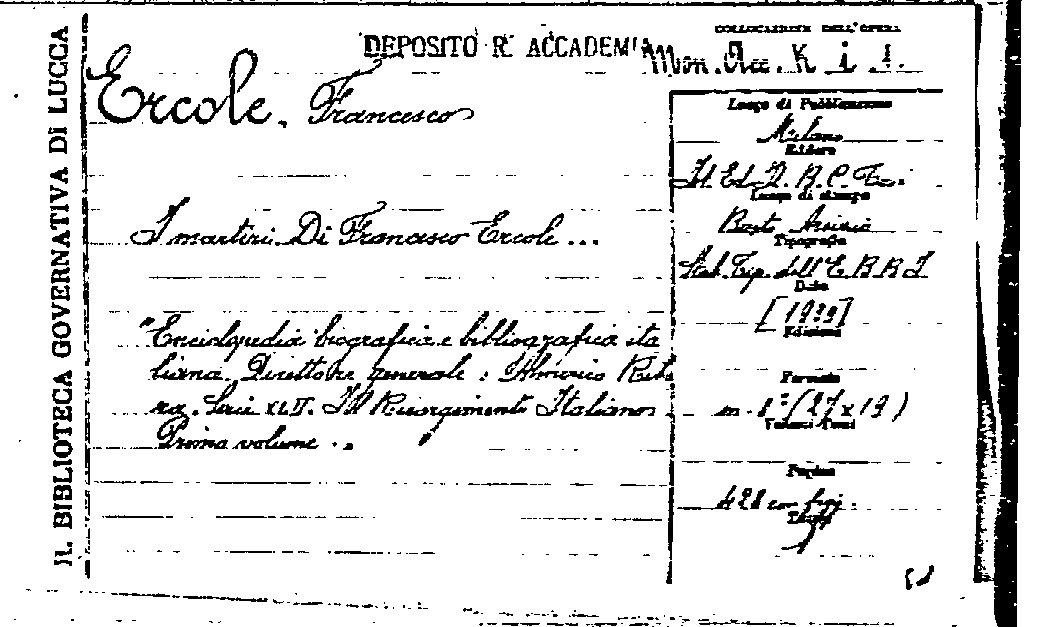 R. BIBLIOTECA GOVERNATIVA DI LUCCA
DEPOSITO R. ACCADEMIA
COLLOCAZIONE DELL'OPERA
Mon. Acc. K i 1.
Ercole, Francesco
I martiri. Di Francesco Ercole ...
"Enciclopedia biografica e bibliografica ita
liana. Direttore generale: Almerico Ribe
ra. Serie XLII. Il Risorgimento Italiano.
Primo volume ..
Luogo di Pubblicazione
Milano
Editore
Ist. Ed. B. C. Tosi
Luogo di stampa
Busto Arsizio
Tipografia
Stab. Tip. dell'E. B. B. I
Data
[1939]
Edizioni
Formato
in. 8º (27 x 19)
Volumi Tomi
Pagine
428 con figg.